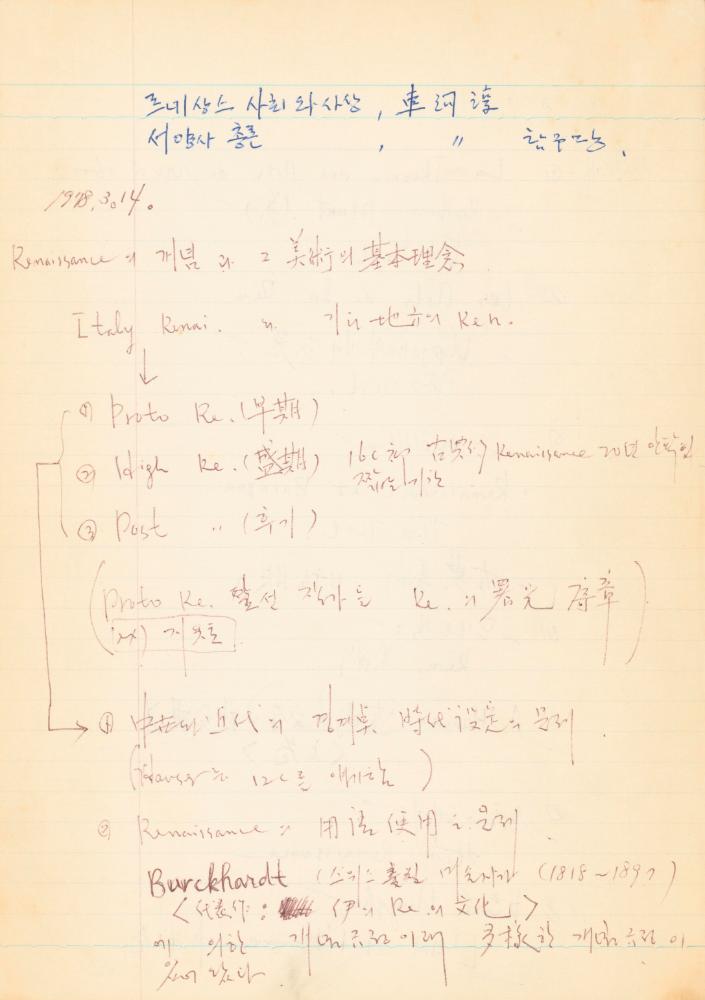 르네상스 사회와 사상, 車河淳
서양사 총론, 〃 탐구당.
1978. 3. 14.
Renaissance의 개념과 그 美術의 基本理念
Italy Renai. 와 기타 地方의 Ren.
① Proto Re. (早期)
② High Re. (盛期) 16C 초 古典的 Renaissance 20년 안팎인
짧은 기간
③ Post 〃 (후기)
(Proto Re. 작가들 Re.의 曙光 序章)
ex) 지옷토
① 中世와 近代의 경계로 時代設定의 문제.
(Hauser는 12C를 얘기함)
② Renaissance의 用語 使用의 문제.
Burckhardt (스위스 출신 미술사가 (1818~1897)
<代表作: 伊의 Re.의 文化>
에 의한 개념규정 이래 多樣한 개념규정이
있어 왔다.